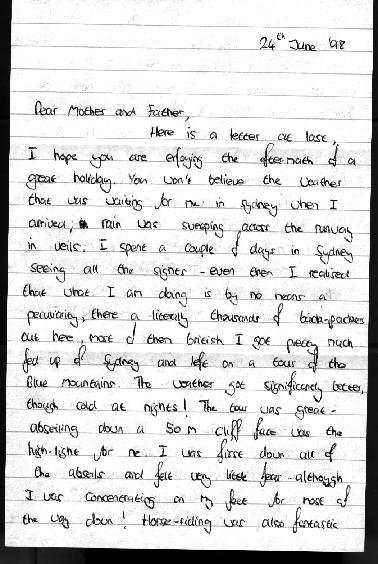 24th June '98
Dear Mother and Father,
Here is a letter at last,
I hope you are enjoying the aftermath of a
great holiday. You won't believe the weather
that was waiting for me in Sydney when I
arrived; rain was sweeping across the runway
in veils. I spent a couple of days in Sydney
seeing all the sights - even then I realised
that what I am doing is by no means a
there a literally thousands of back-packers
out here, most of them british I got pretty much
fed up of Sydney and left on a tour of the
Blue Mountains. The weather got significantly better,
though cold at nights! The tour was great -
abseiling down a 50 m cliff face was the
high-light for me. I was first down all of
the abseils and felt very little fear - although
I was concentrating on my feet for most of
the way down! Horse-riding was also fantastic